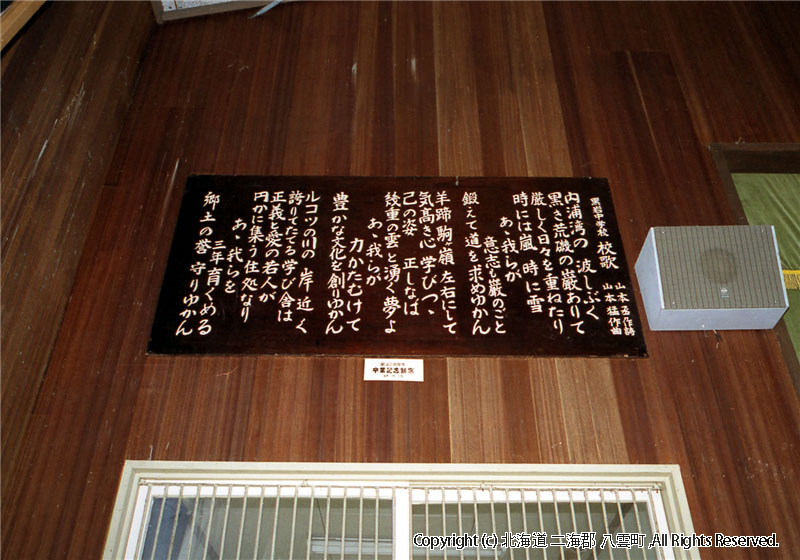 黒岩中学校 校歌
山本 丞作詩
山本 猛作曲
内浦湾の 波しぶく
黒き荒磯の巌ありて
厳しく日々を重ねたり
時には嵐 時に雪
あゝ我らが
意志も巌のごと
鍛えて道を求めゆかん
羊蹄 駒ヶ嶺 左右にして
気高き心 学びつゝ
己の姿 正しなば
幾重の雲と湧く夢よ
あゝ我らが
力かたむけて
豊かな文化を創りゆかん
ルコツの川の 岸近く
誇りたてる学び舎は
正義と愛の若人が
円かに集う住処なり
あゝ我らを
三年育くめる
郷土の誉 守りゆかん
卒業記念制作
Copyright (c) 北海道 二海郡 八雲町 ,All Rights Reserved.